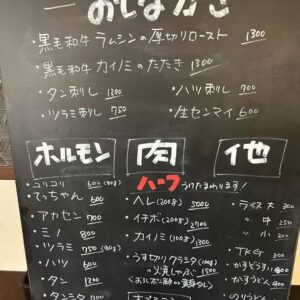 おしながき
・黒毛和牛 ラムシンの厚切りロースト 1300
・黒毛和牛 カイノミのたたき 1300
・タン刺し 1300
・ハツ刺し 700
・ツラミ刺し 750
・生センマイ 600
ホルモン
・コリコリ 600 (80g)
・てっちゃん 600
・アカセン 700
・ミノ 800
・ツラミ 750 (80g)
・ハツ 600
・タン 1200
・タンミタ 700
肉
ハーフ うけたまわります!
・ヘレ (200g) 5000
・イチボ (200g) 2700
・カイノミ (100g) 1300
・うす切り
の火鬼しゃぶ 1500
他
・ライス 大 300
・〃 中 250
・〃 小
・TKG
・かすうどん